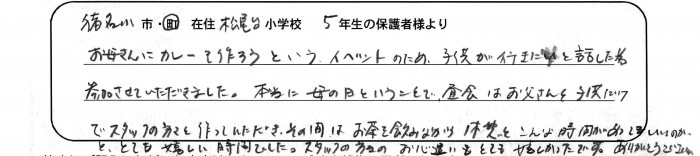 猪名川 市・町 在住 松尾台小学校 5年生の保護者様より
お母さんにカレーを作ろうというイベントのため、子供が行きたいと話した為
参加させていただきました。本当に母の日ということで、昼食はお父さんと子供だけ
でスタッフの方々と作っていただき、その間はお茶を飲みながら休憩をとこんな時間があってもいいのか、
と、とても嬉しい時間でした。スタッフの方々のお心遣いもとても嬉しかったです。ありがとうございました。